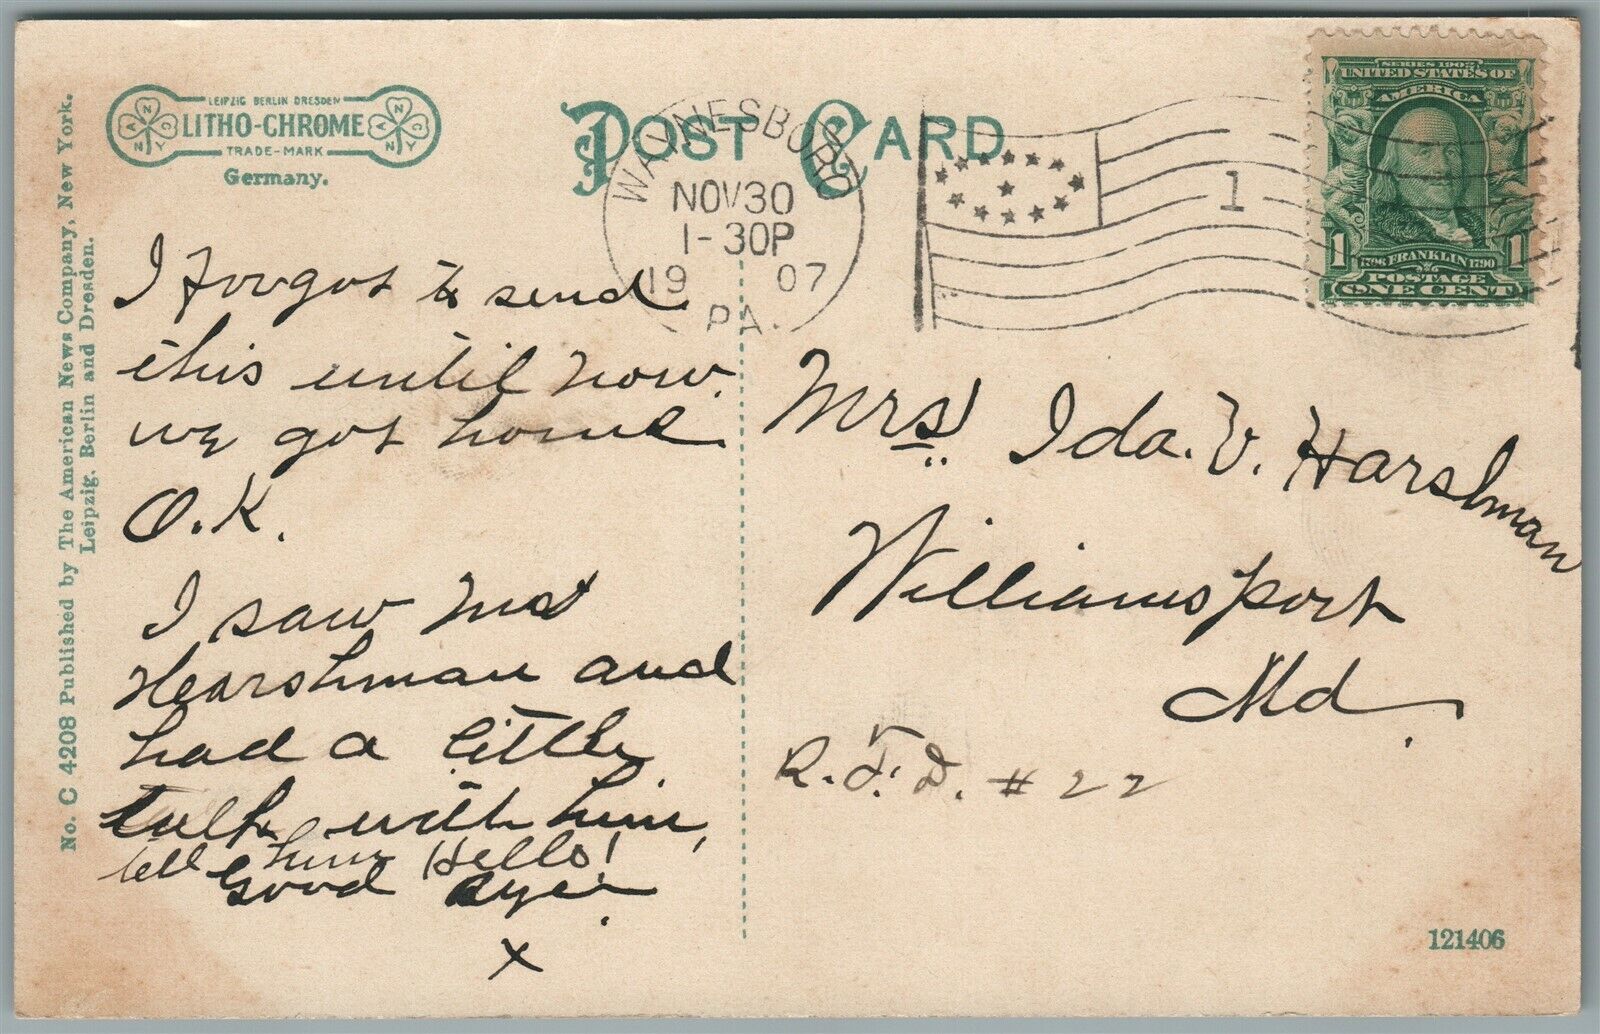 LEIPZIG BERLIN DRESDEN
LITHO-CHROME
TRADE-MARK
Germany.
POST CARD
WAYNESBURG
NOV 30
1-30P
19 07
PA.
1
SERIES 1902
UNITED STATES OF
AMERICA
1 1
1706 FRANKLIN 1790
POSTAGE
ONE CENT
No. C 4208 Published by The American News Company, New York.
Leipzig, Berlin and Dresden.
I forgot to send
this until now.
we got home
O.K.
I saw
Hearshman and
had a little
talk with him,
tell him Hello!
Good Bye.
x
Mrs Ida. V. Harshman
Williamsport
Md.
R.F.D. #22
121406